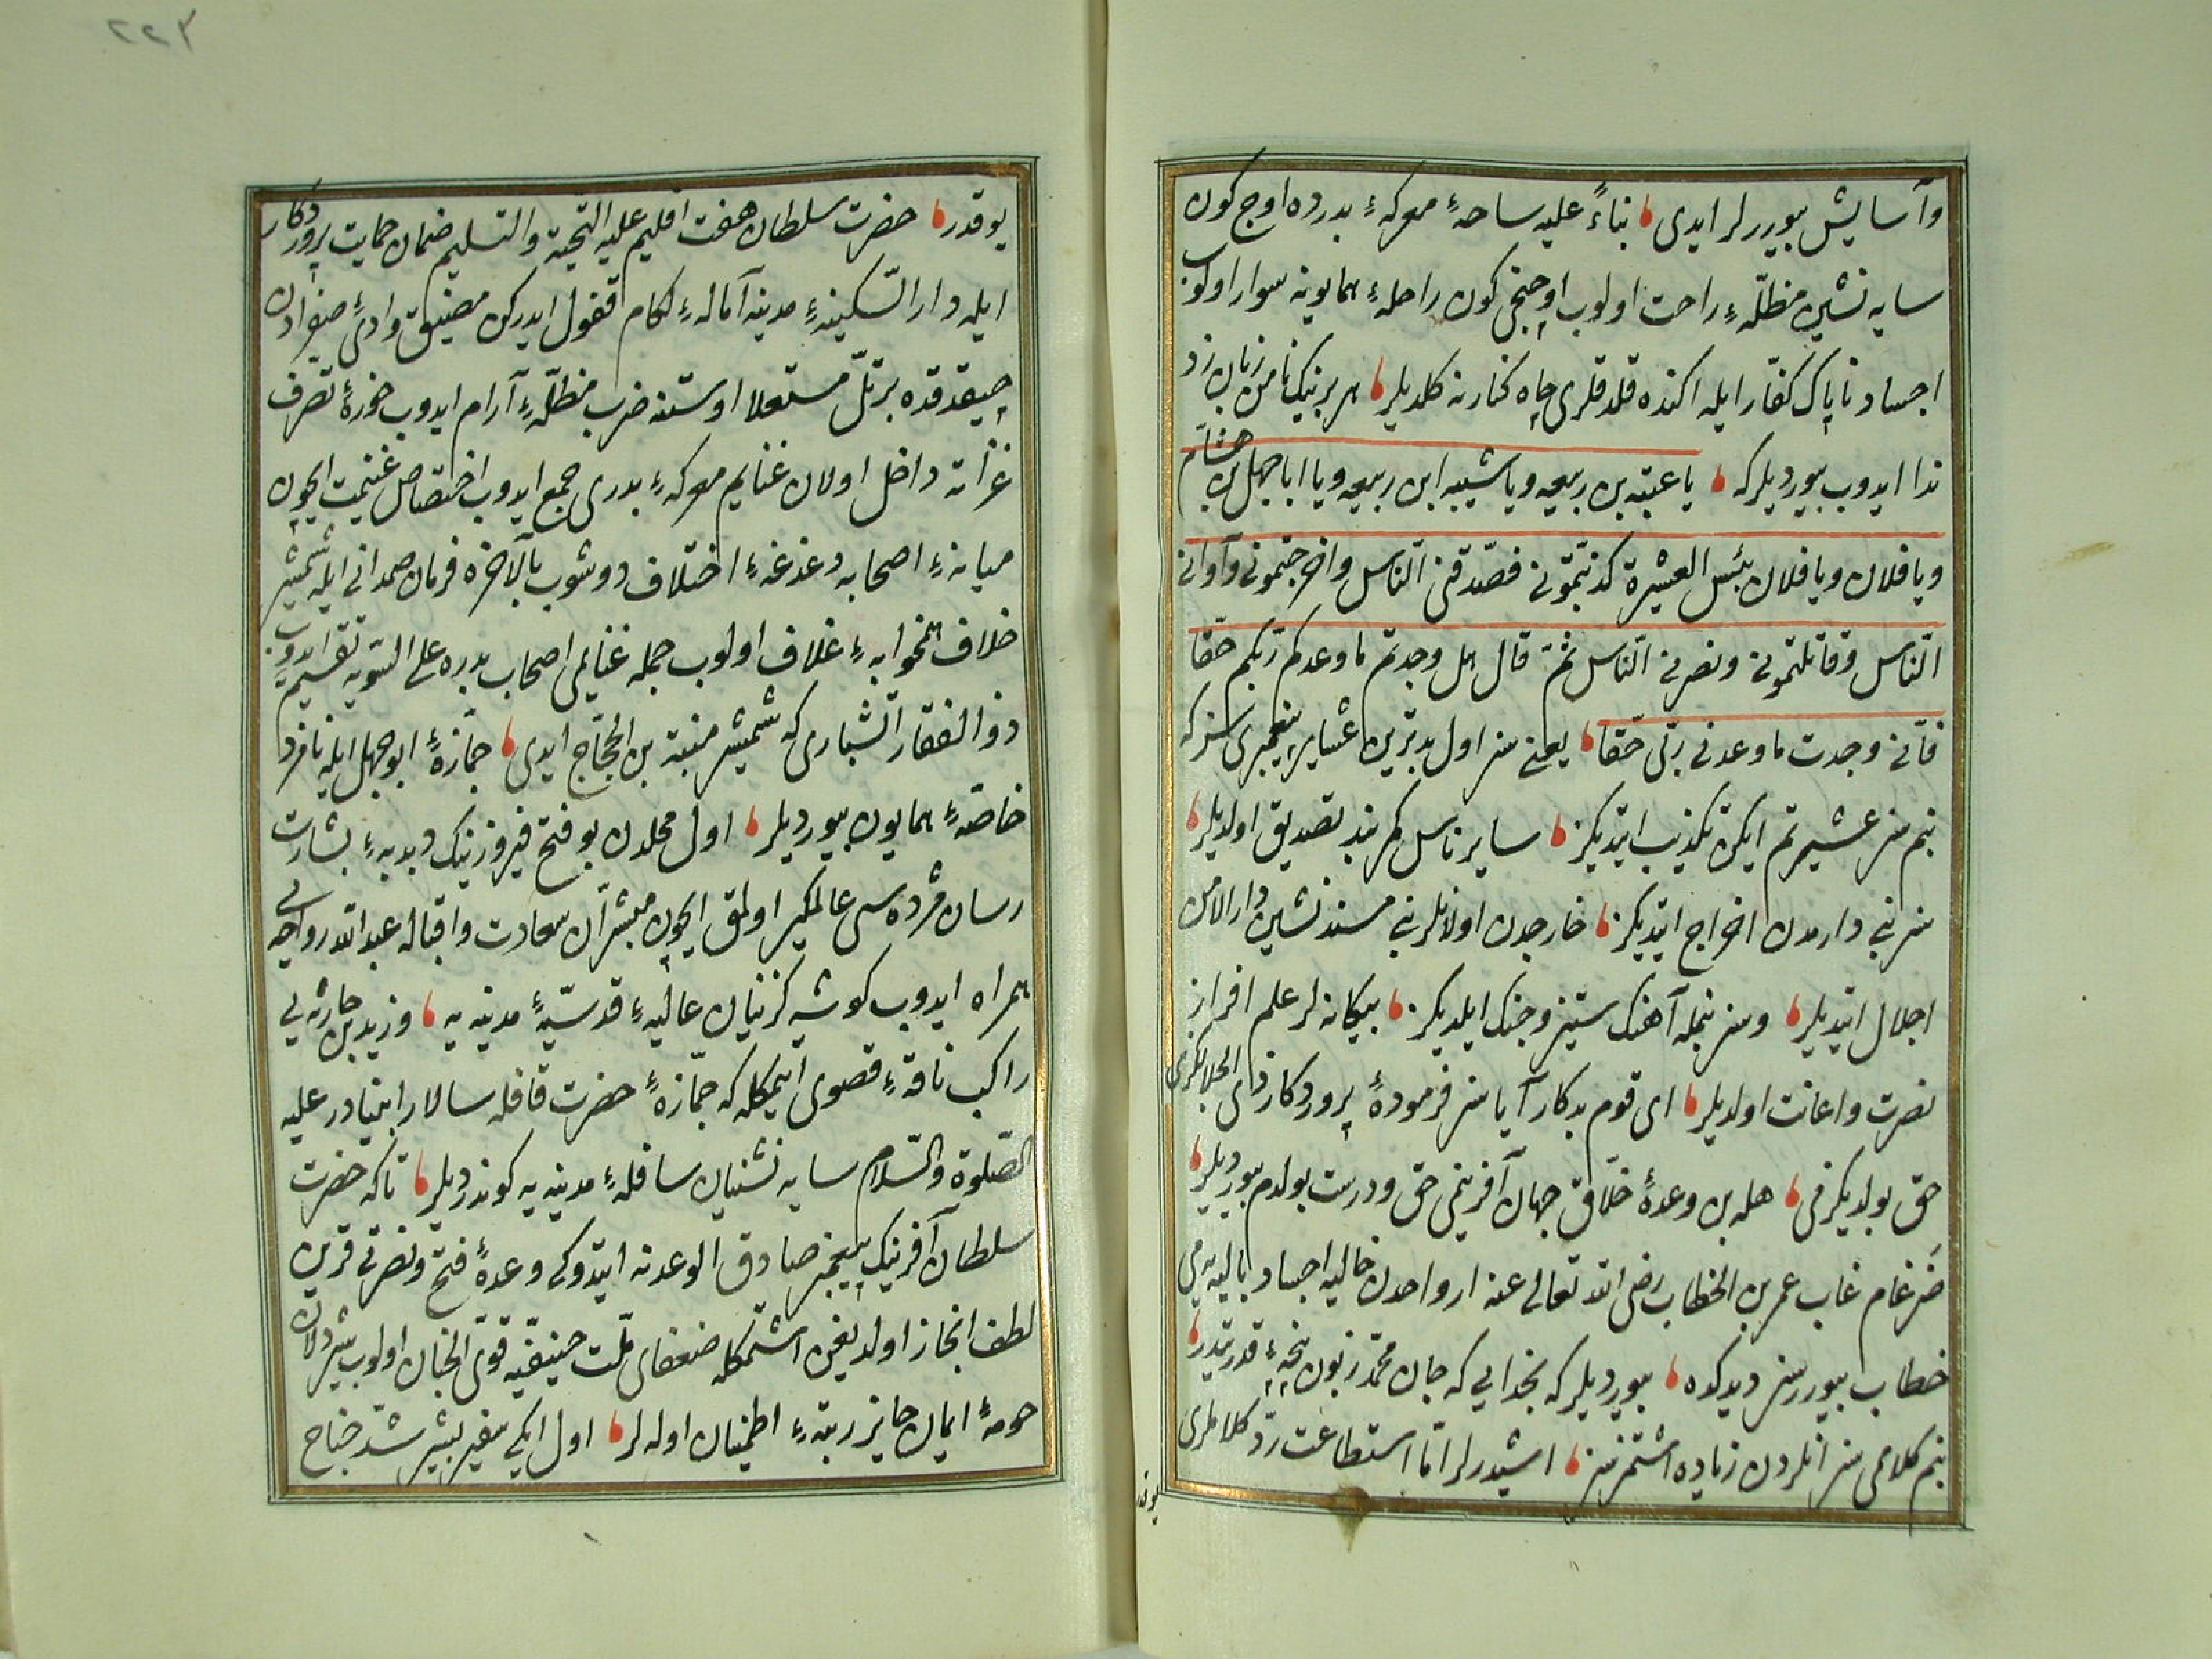 وآسايش بيوررلر ايدى بناءً عليه ساحهٔ معركهٔ بدرده اوچ كون
سايه نشين مظلّهٔ راحت اولوب اوچنجى كون راحلهٔ همايونه سوار اولوب
اجساد ناپاك كفّار ايله اكنده قلدقلرى چاه كنارنه كلديلر هر برينك نامن زبان زد
ندا ايدوب بيورديلركه يا عتبه بن ربيعه ويا شيبه ابن ربيعه ويا ابا جهل بن هشام
ويا فلان ويا فلان بئس العشيرة كذبتمونى فصدّقنى النّاس واخرجتمونى وآوانى
النّاس وقاتلتمونى ونصرنى النّاس ثمّ قال هل وجدتم ما وعدكم ربّكم حقّا
فانّى وجدت ما وعدنى ربّى حقّا يعنى سز اول بدترين عشاير پيغمبرى سزكه
بنم سز عشيرتم ايكن تكذيب ايتديكز ساير ناس كمربند تصديق اولديلر
سز بنى دارمدن اخراج ايتديكز خارجدن اولانلر بنى مسند نشين دار الامن
اجلال ايتديلر وسز بنمله آهنك ستيز وجنك ايلديكز بيكانه لر علم افراز
نصرت واعانت اولديلر اى قوم بدكار آيا سز فرمودهٔ پروردكار ذى الجلالكزى
حق بولديكزمى هله بن وعدهٔ خلّاق جهان آفرينمى حق ودرست بولدم بيورديلر
ضرغام غاب عمر بن الخطاب رضى الله تعالى عنه ارواحدن خاليه اجساد باليه يه مى
خطاب بيوررسز ديدكده بيورديلركه بخدايى كه جان محمّد زبون پنجهٔ قدرتيدر
بنم كلاممى سز انلردن زياده اشتمزسز اشيدرلر امّا استطاعت ردّ كلاملرى
يوقدر
يوقدر حضرت سلطان هفت اقليم عليه التحية والتسليم ضمان حمايت پروردكار
ايله دار السّكينهٔ مدينه آمالهٔ لكام قفول ايدركن مضيق وادئ صفرادن
چيقدقده بر تلّ مستعلا اوستنه ضرب مظلّهٔ آرام ايدوب حوزهٔ تصرف
غزاته داخل اولان غنايم معركهٔ بدرى جمع ايدوب اختصاص غنيمت ايچون
ميانهٔ اصحابه دغدغهٔ اختلاف دوشوب بالآخره فرمان صمدانى ايله شمشير
خلاف همخوابهٔ غلاف اولوب جمله غنايمى اصحاب بدره على السّويه تقسيم ايدوب
ذو الفقار آتشبارى كه شمشير منبّه بن الحجّاج ايدى جمّازهٔ ابو جهل ايله نامزد
خاصّهٔ همايون بيورديلر اول محلدن بو فتح فيروزينك دبدبهٔ بشارت
رسان مژده سى عالمكير اولمق ايچون مبشّران سعادت واقباله عبد الله رواحه يى
همراه ايدوب كوشه كزينان عاليهٔ قدسيّهٔ مدينه يه وزيد بن حارثه يى
راكب ناقهٔ قصوى ايتمكله كه جمّازهٔ حضرت قافله سالار انبيادر عليه
الصّلوة والسّلام سايه نشينان سافلهٔ مدينه يه كوندرديلر تا كه حضرت
سلطان آفرينك پيغمبر صادق الوعدنه ايتدوكى وعدهٔ فتح ونصرتى قرين
لطف انجاز اولديغن اشتمكله ضعفاى ملّت حنيفيّه قوىّ الجنان اولوب شيردلان
حومهٔ ايمان حايز رتبهٔ اطمينان اوله لر اول ايكى سفير بشير شدّ جناح